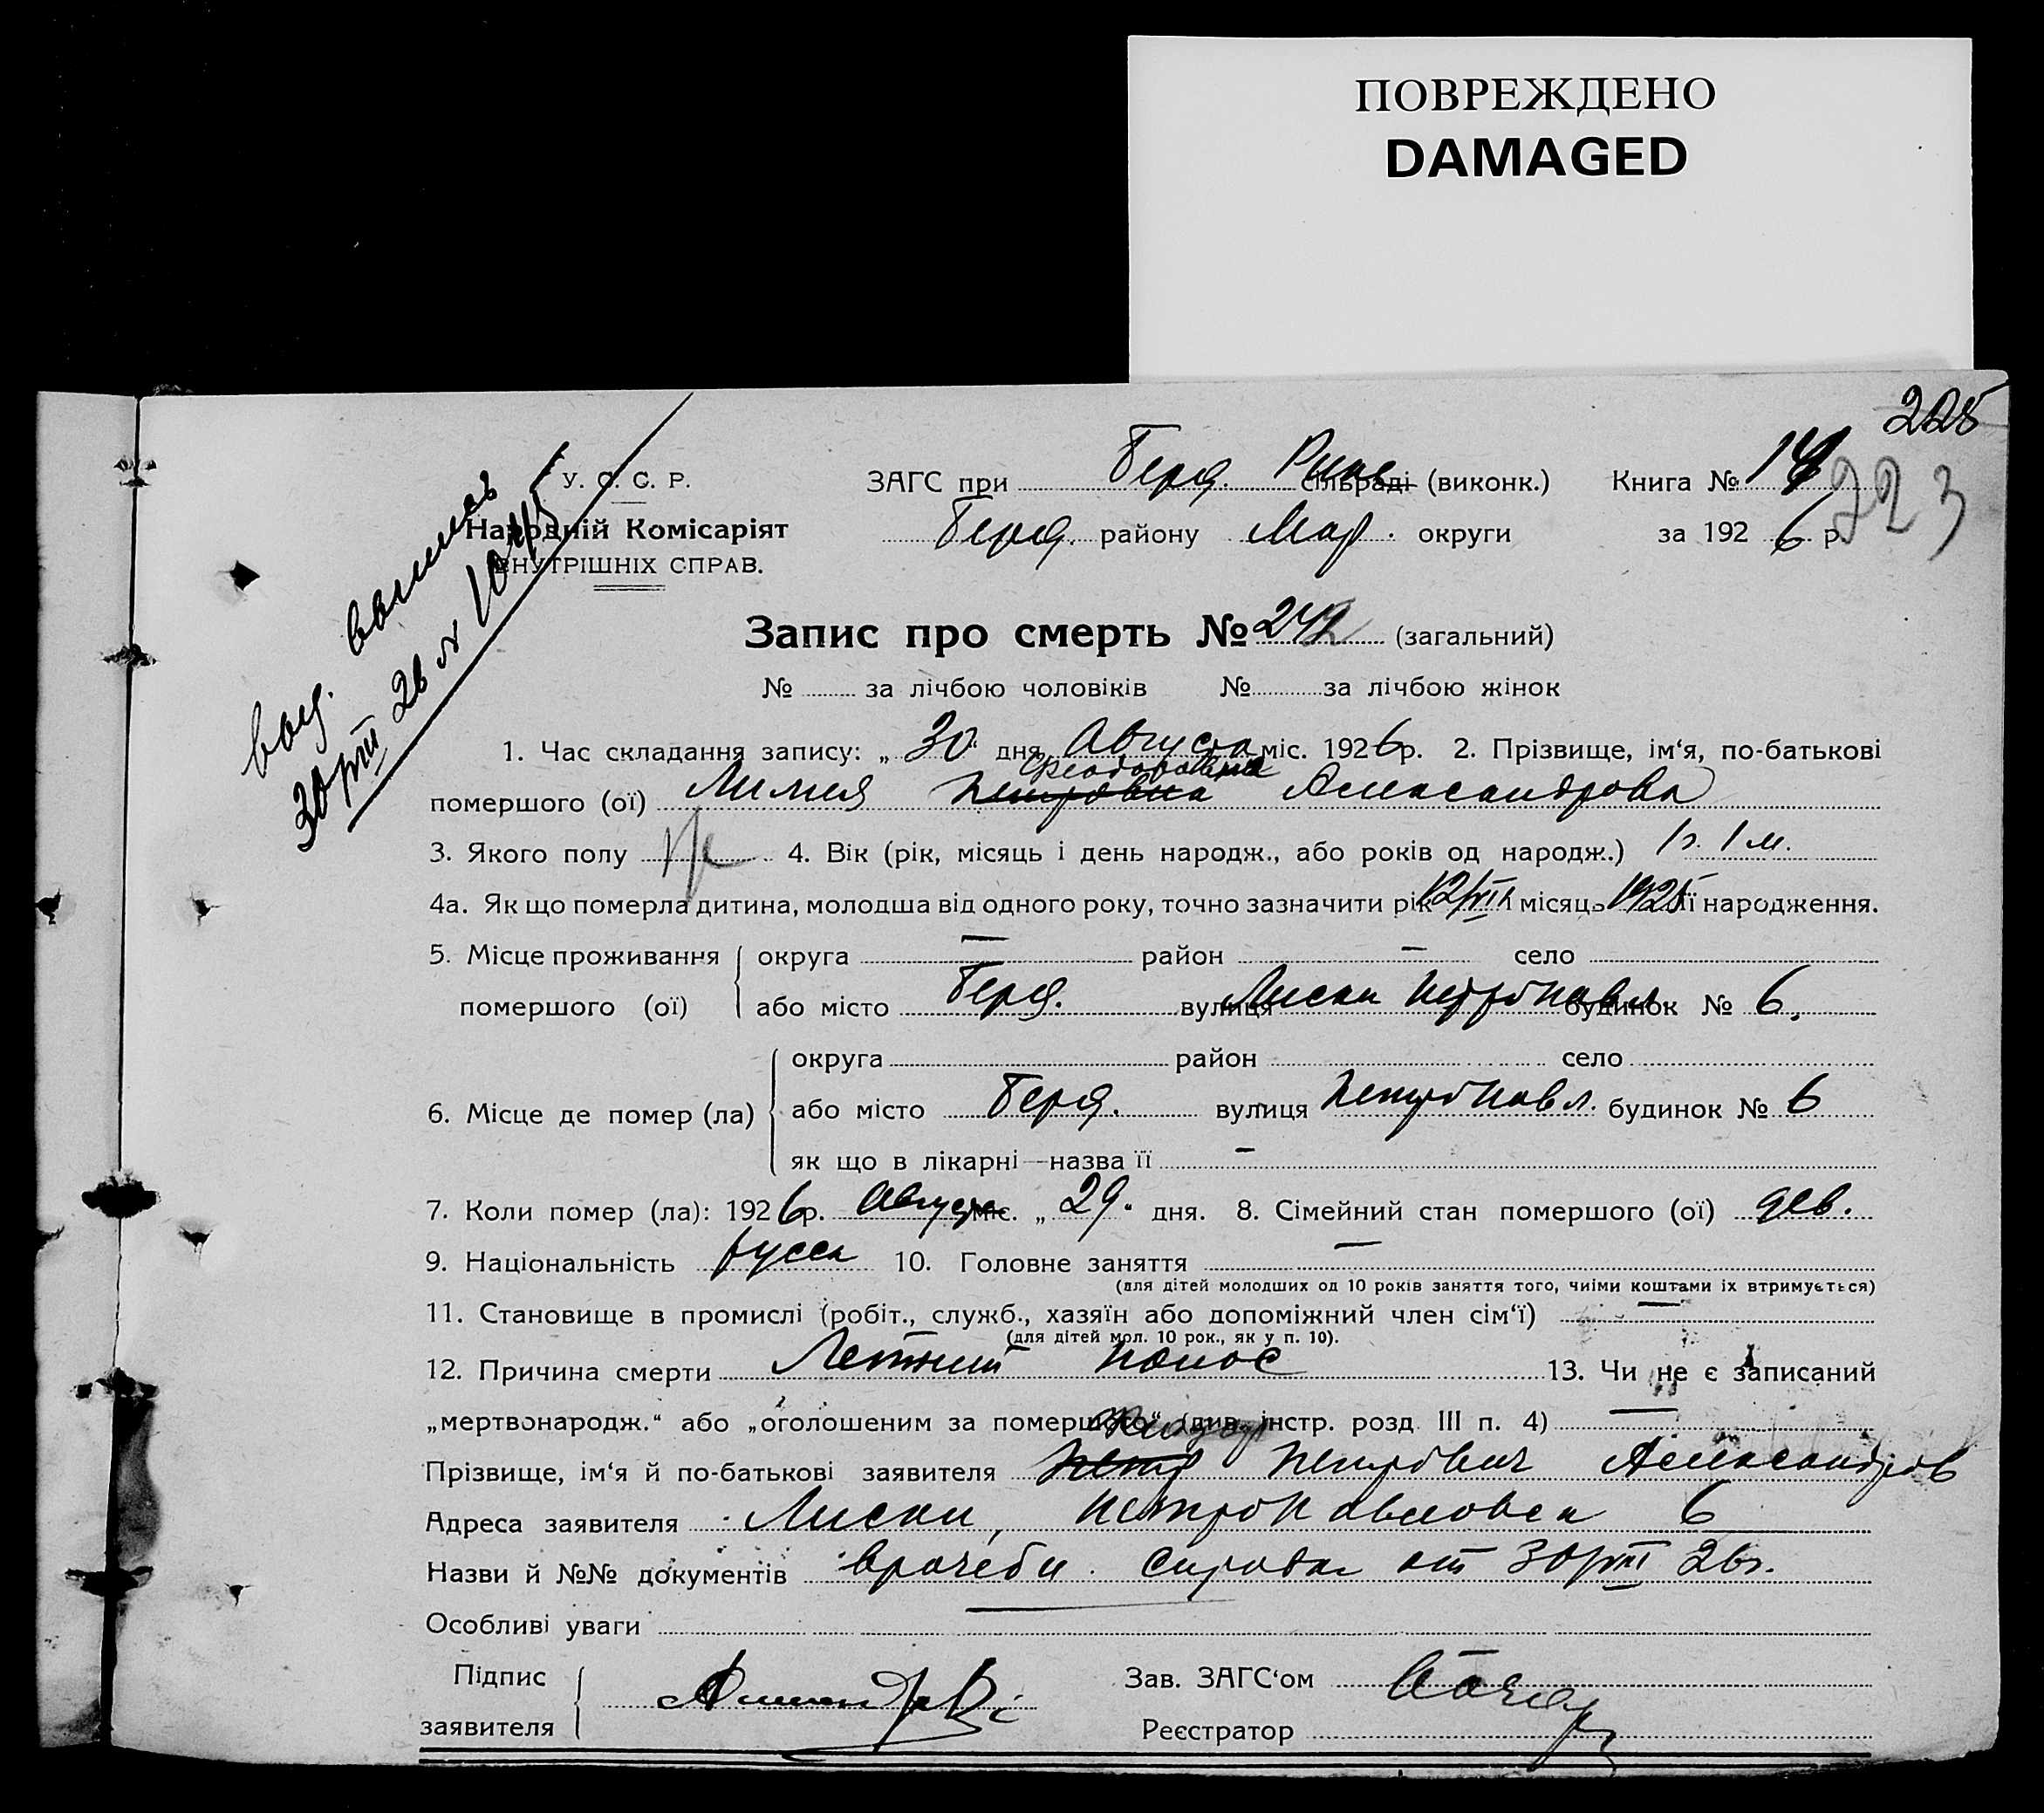 ПОВРЕЖДЕНО
DAMAGED
205
223
У. С. С. Р.
Народній Комісаріят
ВНУТРІШНІХ СПРАВ.
выд. выпись
30/VIII 26 № 1045
ЗАГС при Берд. Рике сільраді (виконк.) Книга № 14
Берд. району Мар. округи за 1926 р.
Запис про смерть № 242 (загальний)
№ за лічбою чоловіків № за лічбою жінок
1. Час складання запису: „30“ дня Августа міс. 1926 р. 2. Прізвище, ім‘я, по-батькові
Феодоровна
помершого (ої) Лидия Петровна Александрова
3. Якого полу ж 4. Вік (рік, місяць і день народж., або років од народж.) 1 г. 1 м.
4а. Як що померла дитина, молодша від одного року, точно зазначити рік 12/VII місяць 1925 її народження.
5. Місце проживання округа — район — село
помершого (ої) або місто Берд. вулиця Лиски Петропавл. будинок № 6.
округа район село
6. Місце де помер (ла) або місто Берд. вулиця Петропавл. будинок № 6
як що в лікарні—назва її —
7. Коли помер (ла): 1926 р. Августа міс. „29“ дня. 8. Сімейний стан помершого (ої) дев.
9. Національність русск 10. Головне заняття —
(для дітей молодших од 10 років заняття того, чиїми коштами їх втримується)
11. Становище в промислі (робіт., служб., хазяїн або допоміжний член сім‘ї) —
(для дітей мол. 10 рок., як у п. 10).
12. Причина смерти Летний понос 13. Чи не є записаний
„мертвонародж.“ або „оголошеним за помершого“ (див. інстр. розд III п. 4) —
Прізвище, ім‘я й по-батькові заявителя Петр Петрович Александров
Адреса заявителя Лиски, Петропавловск 6
Назви й №№ документів врачебн. справка от 30/VIII 26 г.
Особливі уваги
Підпис
заявителя
Зав. ЗАГС‘ом
Реєстратор